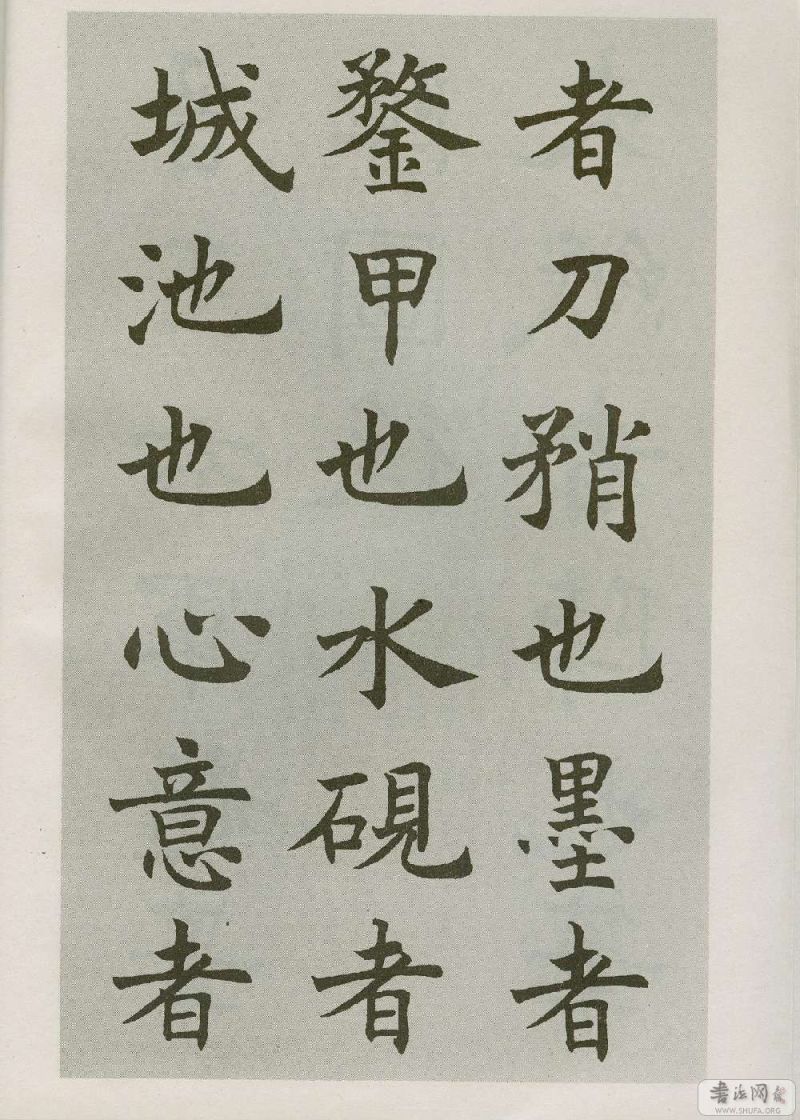 者刀矟也墨者
鍪甲也水硯者
城池也心意者
书法网
WWW.SHUFA.ORG